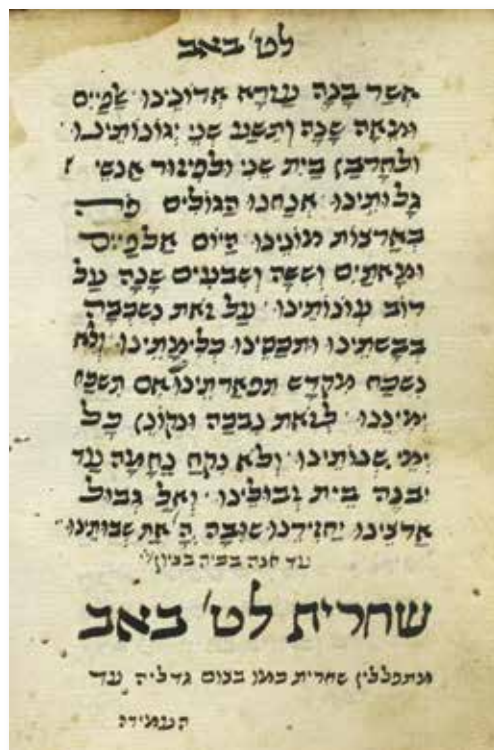 לט' באב
אֲשֶׁר בָּנָה עֶזְרָא אֲדוֹנֵינוּ
וּמֵאָה שָׁנָה וְתֵשַׁע שְׁנֵי יְגוֹנוֹתֵינוּ
וּלְחָרְבַּן בַּיִת שֵׁנִי וּלְפִיזּוּר אַנְשֵׁי
גָּלוּתֵינוּ אֲנַחְנוּ הַגּוֹלִים פֹּה
בְּאַרְצוֹת מוֹנֵינוּ הַיּוֹם אַלְפַּיִים
וּמָאתַיִם וְשִׁשָּׁה וְשִׁבְעִים שָׁנָה עַל
רוֹב עֲוֹנוֹתֵינוּ עַל זֹאת נִשְׁכְּבָה
בְּבָשְׁתֵּינוּ וּתְכַסֵּינוּ כְּלִימָּתֵינוּ וְלֹא
נִשְׁכַּח מִקְדַּשׁ תִּפְאַרְתֵּינוּ אִם תִּשְׁכַּח
יְמִינֵנוּ לְזֹאת נִבְכֶּה וּנְקוֹנֵן כָּל
יְמֵי שְׁנוֹתֵינוּ וְלֹא נִקַּח נֶחָמָה עַד
יִבָּנֶה בֵּית זְבוּלֵינוּ וְאֶל גְּבוּל
אַרְצֵינוּ יַחֲזִירֵנוּ שׁוּבָה ה' אֶת שְׁבוּתֵינוּ
עד חנה בכיה בציון
שחרית לט' באב
מתפללין שחרית כמו בצום גדליה עד
העמידה